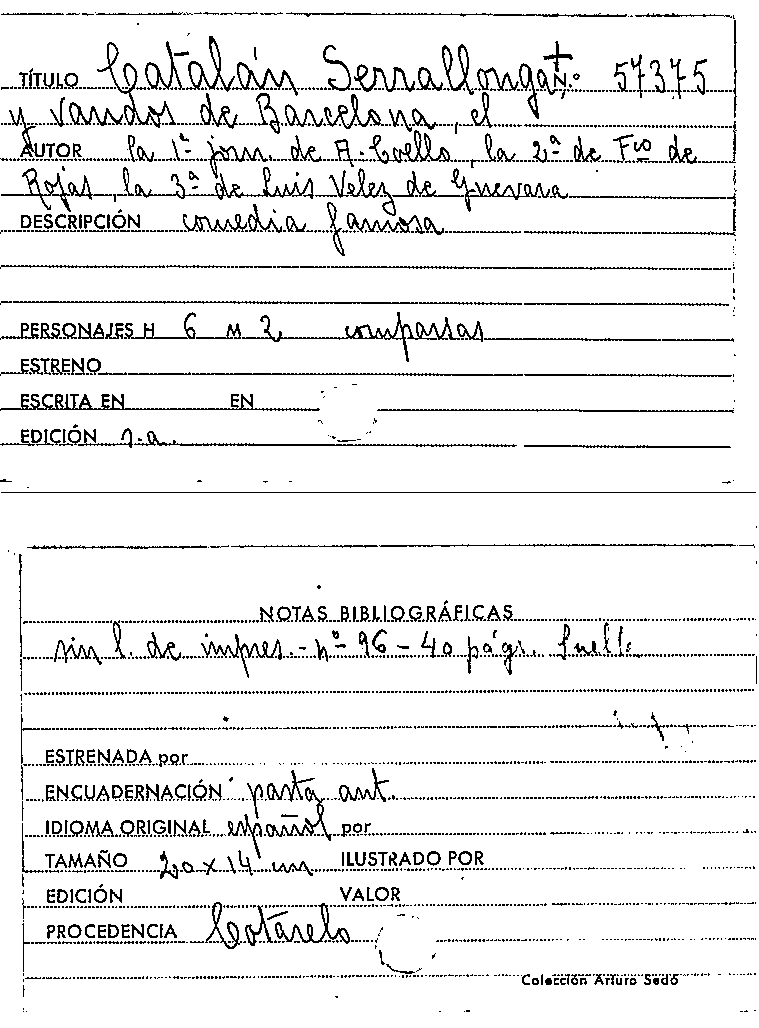 TÍTULO Catalán Serrallonga, N.º 57375
y vandos de Barcelona, el
AUTOR la 1ª jorn. de A. Coello, la 2ª de Fco de
Rojas, la 3ª de Luis Velez de Guevara
DESCRIPCIÓN comedia famosa
PERSONAJES H 6 M 2 comparsas
ESTRENO
ESCRITA EN EN
EDICIÓN s.a.
NOTAS BIBLIOGRÁFICAS
sin l. de impres. - nº 96 - 40 págs. Suelta
ESTRENADA por
ENCUADERNACIÓN pasta ant.
IDIOMA ORIGINAL español por
TAMAÑO 20 x 14 cm ILUSTRADO POR
EDICIÓN VALOR
PROCEDENCIA Cotarelo
Colección Arturo Sedó